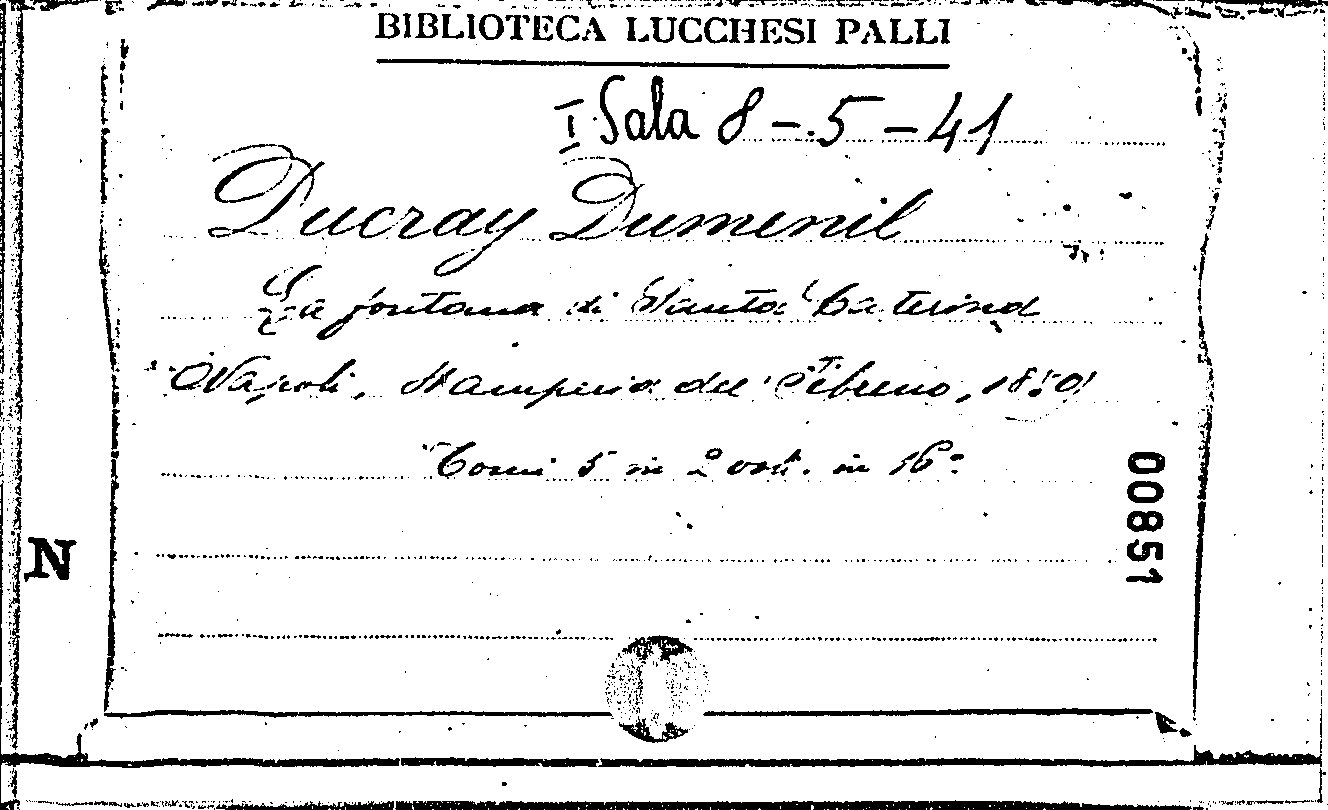 BIBLIOTECA LUCCHESI PALLI
I Sala 8-5-41
Ducray Dumenil
La fontana di Santa Caterina
Napoli, Stamperia del Fibreno, 1850
Tomi 5 in 2 voll. in 16°
00851
N